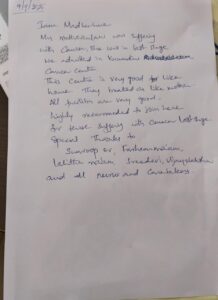 9/9/2025
I am Madhusudhan
My motherinlaw was suffering
with Cancer, she was in last stage.
We admitted in
Cancer Centre
This Centre is very good like
home. They treated as like mother
All facilities are very good.
highly recommended to join here
for those suffering with Cancer last stage
Special Thanks to
Swaroop sir, Farheen mam,
Lalitha mam, Sreedevi, Vijayalakshmi
and all nurses and Caretakers.